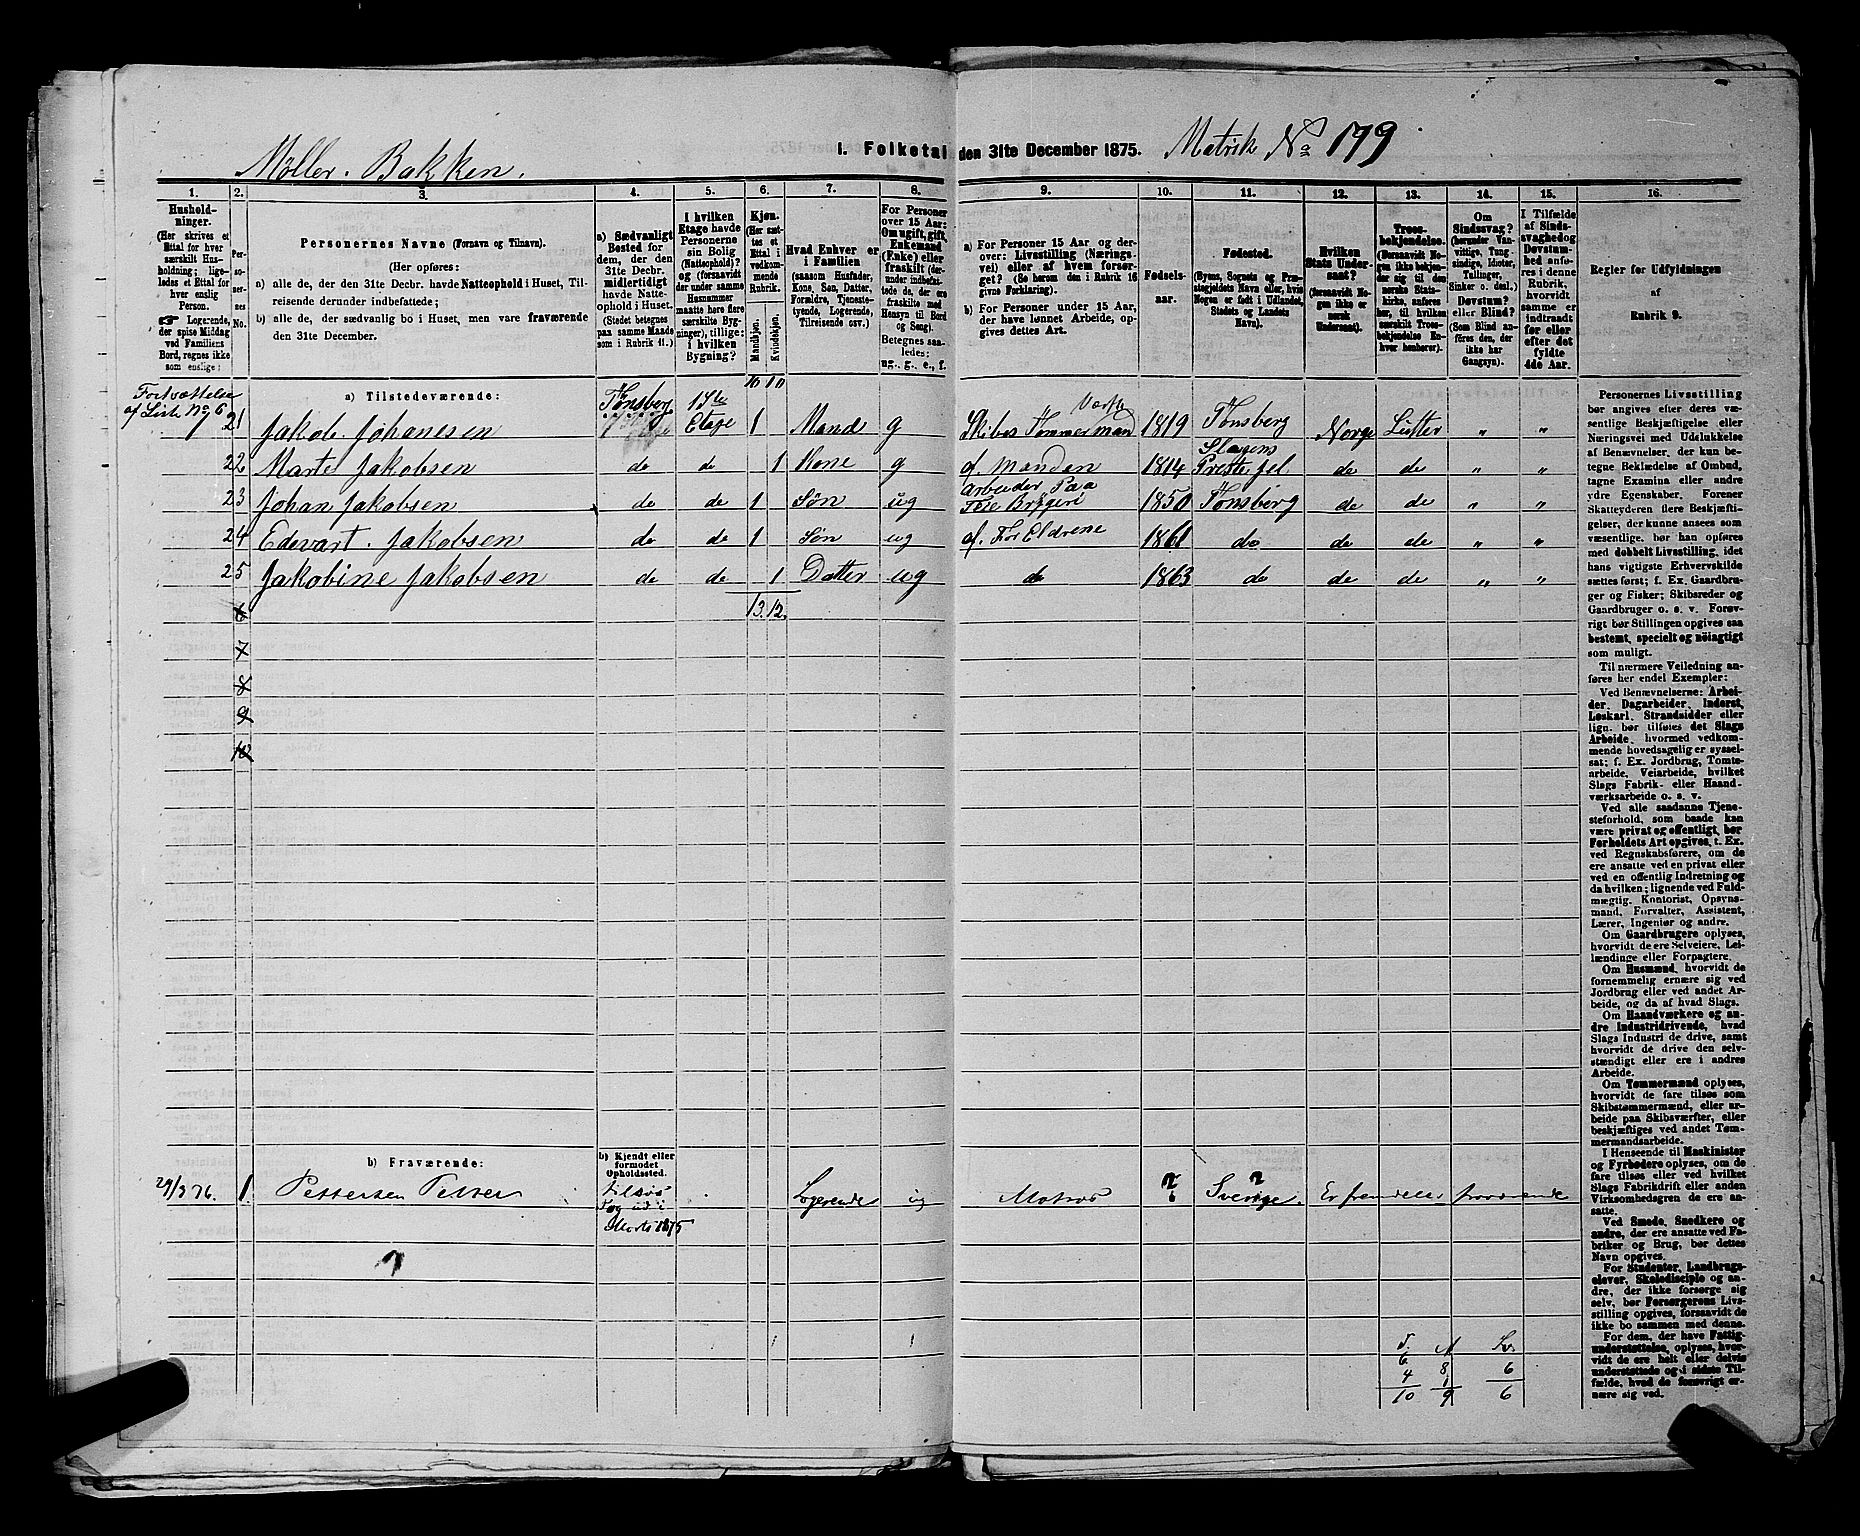 Møller-Bakken.
I. Folketal den 31te December 1875.
Matrik No 179
1.
Hushold-
ninger.
(Her skrives et
Ettal for hver
særskilt Hus-
holdning; lige-
ledes et Ettal for
hver enslig
Person.
Logerende,
der spise Middag
ved Familiens
Bord, regnes ikke
som enslige:
2.
Per-
so-
ner-
nes
No.
3.
Personernes Navne (Fornavn og Tilnavn).
(Her opføres:
a) alle de, der den 31te Decbr. havde Natteophold i Huset, Til-
reisende derunder indbefattede;
b) alle de, der sædvanlig bo i Huset, men vare fraværende
den 31te December.
4.
a) Sædvanligt
Bosted for
dem, der den
31te Decbr.
midlertidigt
havde Natte-
ophold i Huset.
(Stedet betegnes
paa samme Maade
som i Rubrik 11.)
5.
I hvilken
Etage havde
Personerne
sin Bolig
(Natteophold)?
og (forsaavidt
der under samme
Husnummer
maatte høre flere
særskilte Byg-
ninger), tillige:
i hvilken
Bygning?
6.
Kjøn.
(Her sæt-
tes et
Ettal i
vedkom-
mende
Rubrik.
Mandkjøn.
Kvindekjøn.
7.
Hvad Enhver er
i Familien
(saasom Husfader,
Kone, Søn, Datter,
Forældre, Tjeneste-
tyende, Logerende,
Tilreisende osv.)
8.
For Personer
over 15 Aar:
Om ugift, gift,
Enkemand
(Enke) eller
fraskilt (der-
under indbefat-
tede de, der ere
fraskilte med
Hensyn til Bord
og Seng).
Betegnes saa-
ledes:
ug., g., e., f.
9.
a) For Personer 15 Aar og der-
over: Livsstilling (Nærings-
vei) eller af hvem forsør-
get? (Se herom den i Rubrik 16
givne Forklaring).
b) For Personer under 15 Aar,
der have lønnet Arbeide, op-
gives dettes Art.
10.
Fødsels-
aar.
11.
Fødested.
(Byens, Sognets og Præ-
stegjeldets Navn eller, hvis
Nogen er født i Udlandet,
Stedets og Landets
Navn).
12.
Hvilken
Stats Under-
saat?
(forsaavidt No-
gen ikke er
norsk
Undersaat).
13.
Troes-
bekjendelse.
(Forsaavidt No-
gen ikke beken-
der sig til den
norske Stats-
kirke, anføres
her, til hvilken
særskilt Troes-
bekjendelse En-
hver henhører).
14.
Om
Sindssvag?
(herunder Van-
vittige, Tung-
sindige, Idioter,
Tullinger,
Sinker o. desl.)
Døvstum?
eller Blind?
(Som Blind an-
føres den, der
ikke har
Gangsyn).
15.
I Tilfælde
af Sinds-
svaghed og
Døvstum-
hed anfø-
res i denne
Rubrik,
hvorvidt
samme er
indtraadt
før eller
efter det
fyldte
4de Aar.
16.
Regler for Udfyldningen
af
Rubrik 9.
Fortsættelse
af Liste No 6
a) Tilstedeværende:
10 10
21 Jakob Johanesen Tønsberg 1ste Etage 1 Mand g Skibs Tømmerman Værft 1819 Tønsberg Norge Lutter " "
22 Marte Jakobsen do do 1 Kone g af Manden 1814 Slagens Preste jel do do " "
23 Johan Jakobsen do do 1 Søn ug arbeider Paa Foie Bryggeri 1850 Tønsberg do do " "
24 Edevart Jakobsen do do 1 Søn ug af For Eldrene 1861 do do do " "
25 Jakobine Jakobsen do do 1 Datter ug do 1863 do do do " "
13. 12.
6
7
8
9
10
b) Fraværende:
b) Kjendt eller
formodet
Opholdssted.
29/3 76. 1. Pettersen Petter tilsøs Tog ud i Marts 1875 Logerende ug Matros ? Sverige ? Er fremdeles fraværende
1 1
T. A Lv.
6 8 6
4 1
10 9 6
Personernes Livsstilling
bør angives efter deres væ-
sentlige Beskjæftigelse eller
Næringsvei med Udelukkelse
af Benævnelser, der kun be-
tegne Beklædelse af Ombud,
tagne Examina eller andre
ydre Egenskaber. Forener
Skatteyderen flere Beskjæfti-
gelser, der kunne ansees som
væsentlige, bør han opføres
med dobbelt Livsstilling, idet
hans vigtigste Erhvervskilde
sættes først; f. Ex. Gaardbru-
ger og Fisker; Skibsreder og
Gaardbruger o. s. v. Forøv-
rigt bør Stillingen opgives saa
bestemt, specielt og nöiagtigt
som muligt.
Til nærmere Veiledning an-
føres her endel Exempler:
Ved Benævnelserne: Arbei-
der, Dagarbeider, Inderst,
Løskarl, Strandsidder eller
lign. bør tilføies det Slags
Arbeide, hvormed vedkom-
mende hovedsagelig er syssel-
sat; f. Ex. Jordbrug, Tomte-
arbeide, Veiarbeide, hvilket
Slags Fabrik- eller Haand-
værksarbeide o. s. v.
Ved alle saadanne Tjene-
steforhold, som baade kan
være privat og offentligt, bør
Forholdets Art opgives, t. Ex.
ved Regnskabsførere, om de
ere ansatte ved en privat eller
ved en offentlig Indretning og
da hvilken; lignende ved Fuld-
mægtig, Kontorist, Opsyns-
mand, Forvalter, Assistent,
Lærer, Ingeniør og andre.
Om Gaardbrugere oplyses,
hvorvidt de ere Selveiere, Lei-
lændinge eller Forpagtere.
Om Husmænd, hvorvidt de
fornemmelig ernære sig ved
Jordbrug eller ved andet Ar-
beide, og da af hvad Slags.
Om Haandværkere og an-
dre Industridrivende, hvad
Slags Industri de drive, samt
hvorvidt de drive den selv-
stændigt eller ere i andres
Arbeide.
Om Tømmermænd oplyses,
hvorvidt de fare tilsøs som
Skibstømmermænd, eller ar-
beide paa Skibsværfter, eller
beskjæftiges ved andet Tøm-
mermandsarbeide.
I Henseende til Maskinister
og Fyrbødere oplyses, om de
fare tilsøs eller ved hvilket
Slags Fabrikdrift eller anden
Virksomhedsgren de ere an-
satte.
Ved Smede, Snedkere og
andre, der ere ansatte ved Fa-
briker og Brug, bør dettes
Navn opgives.
For Studenter, Landbrugs-
elever, Skoledisciple og an-
dre, der ikke forsørge sig
selv, bør Forsørgerens Livs-
stilling opgives, forsaavidt de
ikke bo sammen med denne.
For dem, der have Fattig-
understøttelse, oplyses, hvor-
vidt de ere helt eller delvis
understøttede og i sidste Til-
fælde, hvad de forøvrigt er-
nære sig ved.